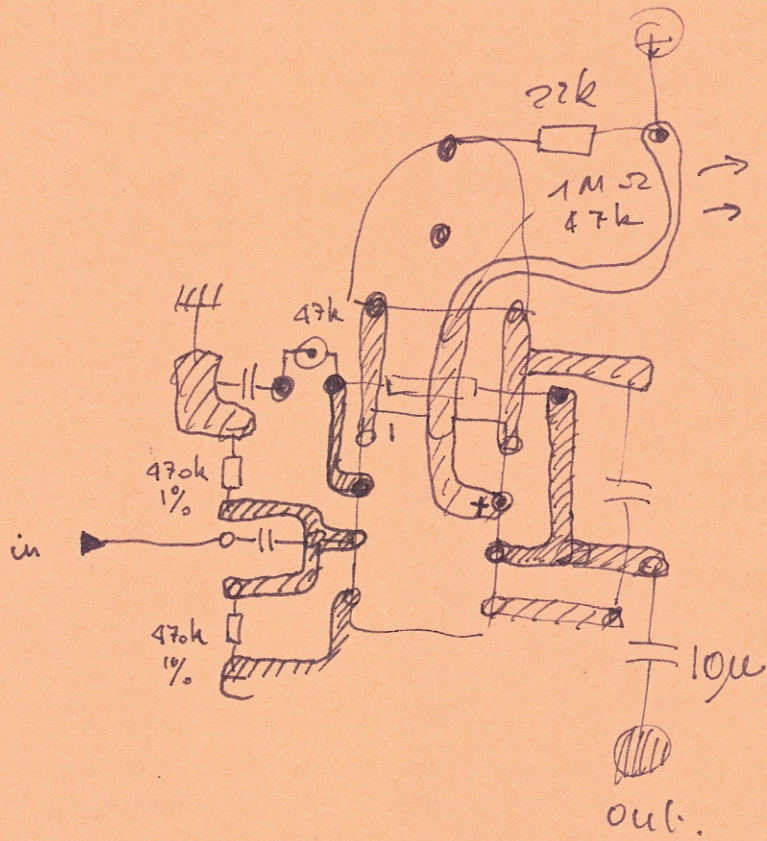 +
22k
1 M Ω
47k
47k
470k
1%
in
+
470k
1%
10µ
out.